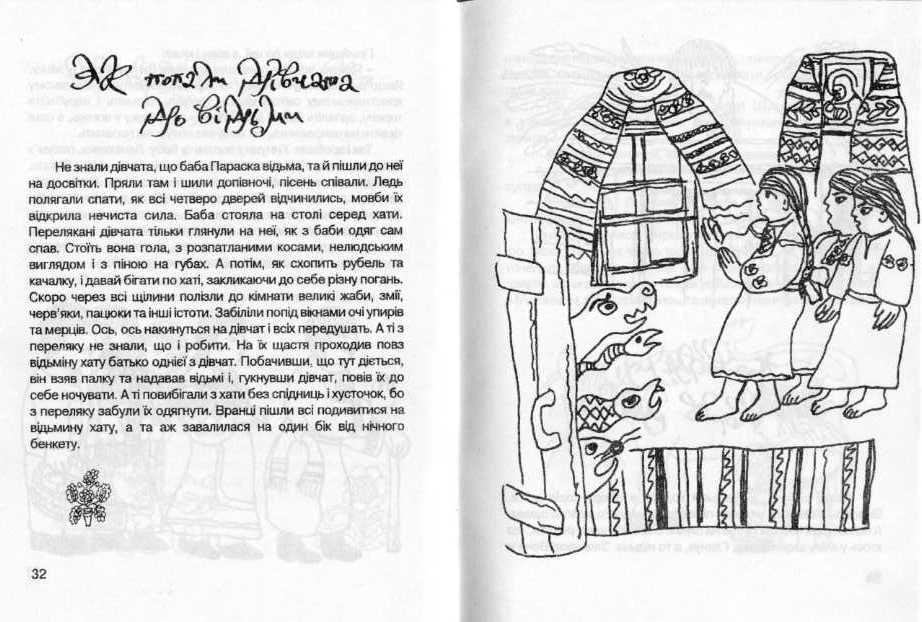 Як попали дівчата
до відьми
Не знали дівчата, що баба Параска відьма, та й пішли до неї
на досвітки. Пряли там і шили допівночі, пісень співали. Ледь
полягали спати, як всі четверо дверей відчинились, мовби їх
відкрила нечиста сила. Баба стояла на столі серед хати.
Перелякані дівчата тільки глянули на неї, як з баби одяг сам
спав. Стоїть вона гола, з розпатланими косами, нелюдським
виглядом і з піною на губах. А потім, як схопить рубель та
качалку, і давай бігати по хаті, закликаючи до себе різну погань.
Скоро через всі щілини полізли до кімнати великі жаби, змії,
черв'яки, пацюки та інші істоти. Забіліли попід вікнами очі упирів
та мерців. Ось, ось накинуться на дівчат і всіх передушать. А ті з
переляку не знали, що і робити. На їх щастя проходив повз
відьмину хату батько однієї з дівчат. Побачивши, що тут діється,
він взяв палку та надавав відьмі і, гукнувши дівчат, повів їх до
себе ночувати. А ті повибігали з хати без спідниць і хусточок, бо
з переляку забули їх одягнути. Вранці пішли всі подивитися на
відьмину хату, а та аж завалилася на один бік від нічного
бенкету.
32